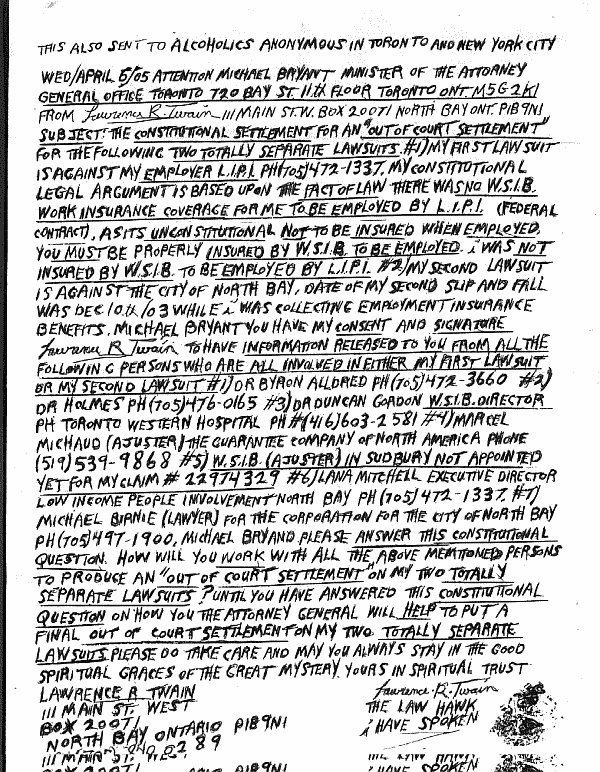 THIS ALSO SENT TO ALCOHOLICS ANONYMOUS IN TORONTO AND NEW YORK CITY
WED/APRIL 5/05 ATTENTION MICHAEL BRYANT MINISTER OF THE ATTORNEY
GENERAL OFFICE TORONTO 720 BAY ST. 11.th FLOOR TORONTO ONT M5G 2K1
FROM Lawrence R. Twain 111 MAIN ST.W. BOX 20071 NORTH BAY ONT. P1B9N1
SUBJECT: THE CONSTITUTIONAL SETTLEMENT FOR AN "OUT OF COURT SETTLEMENT"
FOR THE FOLLOWING TWO TOTALLY SEPARATE LAWSUITS. #1) MY FIRST LAWSUIT
IS AGAINST MY EMPLOYER L.I.P.I. PH(705)472-1337. MY CONSTITUTIONAL
LEGAL ARGUMENT IS BASED UPON THE FACT OF LAW THERE WAS NO W.S.I.B.
WORK INSURANCE COVERAGE FOR ME TO BE EMPLOYED BY L.I.P.I. (FEDERAL
CONTRACT), AS ITS UNCONSTITUTIONAL NOT TO BE INSURED WHEN EMPLOYED.
YOU MUST BE PROPERLY INSURED BY W.S.I.B. TO BE EMPLOYED. i WAS NOT
INSURED BY W.S.I.B. TO BE EMPLOYED BY L.I.P.I. #2) MY SECOND LAWSUIT
IS AGAINST THE CITY OF NORTH BAY. DATE OF MY SECOND SLIP AND FALL
WAS DEC 10.th/03 WHILE i WAS COLLECTING EMPLOYMENT INSURANCE
BENEFITS. MICHAEL BRYANT YOU HAVE MY CONSENT AND SIGNATURE
Lawrence R Twain TO HAVE INFORMATION RELEASED TO YOU FROM ALL THE
FOLLOWING PERSONS WHO ARE ALL INVOLVED IN EITHER MY FIRST LAWSUIT
OR MY SECOND LAWSUIT #1) DR BYRON ALLDRED PH(705)472-3660 #2)
DR HOLMES PH(705)476-0165 #3) DR DUNCAN GORDON W.S.I.B. DIRECTOR
PH TORONTO WESTERN HOSPITAL PH#(416)603-2581 #4) MARCEL
MICHAUD (AJUSTER) THE GUARANTEE COMPANY OF NORTH AMERICA PHONE
(519)539-9868 #5) W.S.I.B. (AJUSTER) IN SUDBURY NOT APPOINTED
YET FOR MY CLAIM # 22974329 #6) LANA MITCHELL EXECUTIVE DIRECTOR
LOW INCOME PEOPLE INVOLVEMENT NORTH BAY PH (705)472-1337. #7)
MICHAEL BURNIE (LAWYER) FOR THE CORPORATION FOR THE CITY OF NORTH BAY
PH(705)497-1900, MICHAEL BRYAND PLEASE ANSWER THIS CONSTITUTIONAL
QUESTION. HOW WILL YOU WORK WITH ALL THE ABOVE MEMTIONED PERSONS
TO PRODUCE AN "OUT OF COURT SETTLEMENT" ON MY TWO TOTALLY
SEPARATE LAWSUITS? UNTIL YOU HAVE ANSWERED THIS CONSTITUTIONAL
QUESTION ON HOW YOU THE ATTORNEY GENERAL WILL HELP TO PUT A
FINAL OUT OF COURT SETTLEMENT ON MY TWO TOTALLY SEPARATE
LAWSUITS. PLEASE DO TAKE CARE AND MAY YOU ALWAYS STAY IN THE GOOD
SPIRITUAL GRACES OF THE GREAT MYSTERY. YOURS IN SPIRITUAL TRUST
LAWRENCE R TWAIN Lawrence R. Twain
111 MAIN ST. WEST THE LAW HAWK
BOX 20071 i HAVE SPOKEN
NORTH BAY ONTARIO P1B9N1
111 MAIN ST.
BOX 20071 P1B9N1 i HAVE SPOKEN